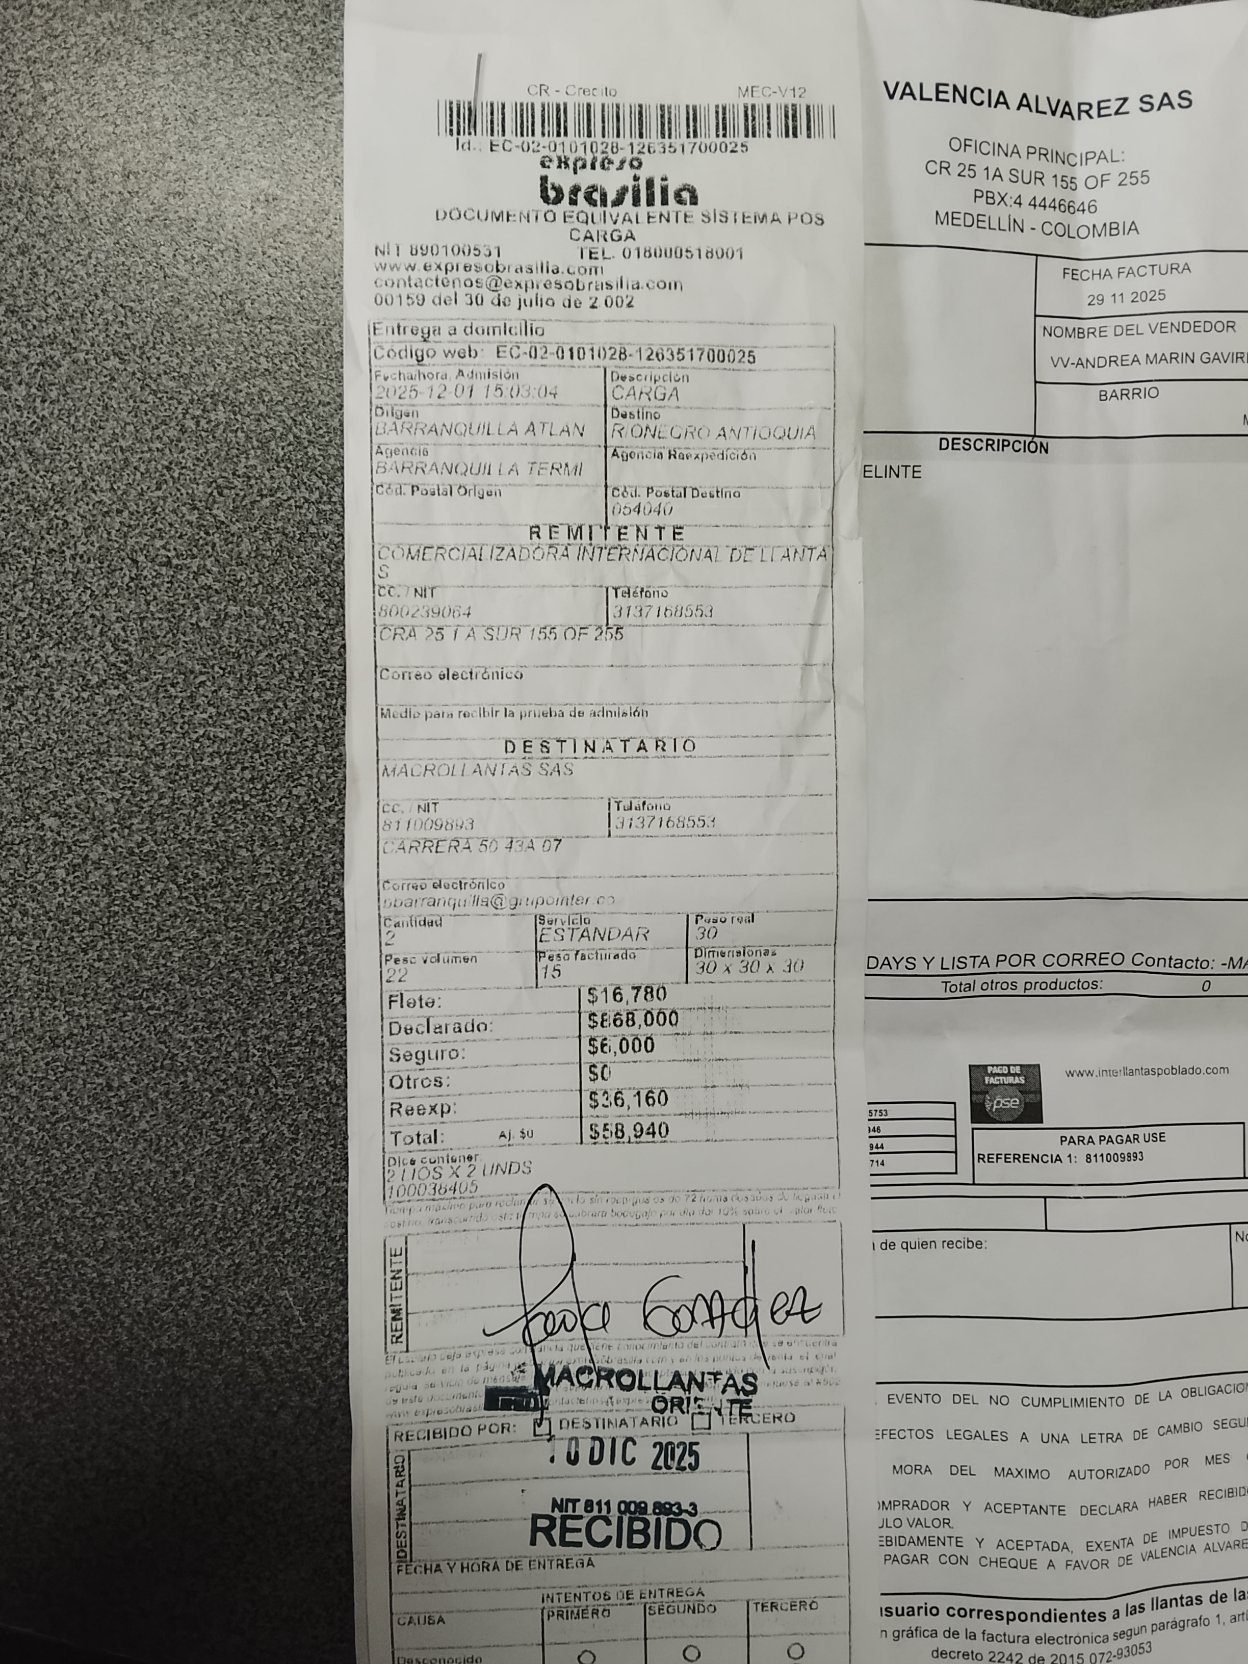 CR - Crecito MEC-V12
Id.: EC-02-0101028-126351700025
expreso
brasilia
DOCUMENTO EQUIVALENTE SISTEMA POS
CARGA
NIT 890100531 TEL. 018000518001
www.expresobrasilia.com
contactenos@expresobrasilia.com
00159 del 30 de julio de 2 002
Entrega a domicilio
Código web: EC-02-0101028-126351700025
Fecha/hora. Admisión Descripción
2025-12-01 15:03:04 CARGA
Origen Destino
BARRANQUILLA ATLAN RIONEGRO ANTIOQUIA
Agencia Agencia Reexpedición
BARRANQUILLA TERMI
Cód. Postal Origen Cód. Postal Destino
054040
REMITENTE
COMERCIALIZADORA INTERNACIONAL DE LLANTA
S
CC. / NIT Teléfono
800239064 3137168553
CRA 25 1 A SUR 155 OF 255
Correo electrónico
Medio para recibir la prueba de admisión
DESTINATARIO
MACROLLANTAS SAS
CC. / NIT Teléfono
811009893 3137168553
CARRERA 50 43A 07
Correo electrónico
bbarranquilla@grupointer.co
Cantidad Servicio Peso real
2 ESTANDAR 30
Peso volumen Peso facturado Dimensiones
22 15 30 x 30 x 30
Flete: $16,780
Declarado: $868,000
Seguro: $6,000
Otros: $0
Reexp: $36,160
Total: Aj. $0 $58,940
Dice contener
2 LIOS X 2 UNDS
100038405
REMITENTE
MACROLLANTAS
ORIENTE
RECIBIDO POR: DESTINATARIO TERCERO
10 DIC 2025
DESTINATARIO
NIT 811 009 893-3
RECIBIDO
FECHA Y HORA DE ENTREGA
INTENTOS DE ENTREGA
CAUSA PRIMERO SEGUNDO TERCERO
Desconocido
VALENCIA ALVAREZ SAS
OFICINA PRINCIPAL:
CR 25 1A SUR 155 OF 255
PBX:4 4446646
MEDELLÍN - COLOMBIA
FECHA FACTURA
29 11 2025
NOMBRE DEL VENDEDOR
VV-ANDREA MARIN GAVIRI
BARRIO
DESCRIPCIÓN
ELINTE
DAYS Y LISTA POR CORREO Contacto: -MA
Total otros productos: 0
PAGO DE
FACTURAS
pse
www.interllantaspoblado.com
5753
946
944
714
PARA PAGAR USE
REFERENCIA 1: 811009893
de quien recibe:
EVENTO DEL NO CUMPLIMIENTO DE LA OBLIGACION
EFECTOS LEGALES A UNA LETRA DE CAMBIO SEGU
MORA DEL MAXIMO AUTORIZADO POR MES
OMPRADOR Y ACEPTANTE DECLARA HABER RECIBID
ULO VALOR.
EBIDAMENTE Y ACEPTADA, EXENTA DE IMPUESTO D
PAGAR CON CHEQUE A FAVOR DE VALENCIA ALVARE
usuario correspondientes a las llantas de la
n gráfica de la factura electrónica segun parágrafo 1, art
decreto 2242 de 2015 072-93053